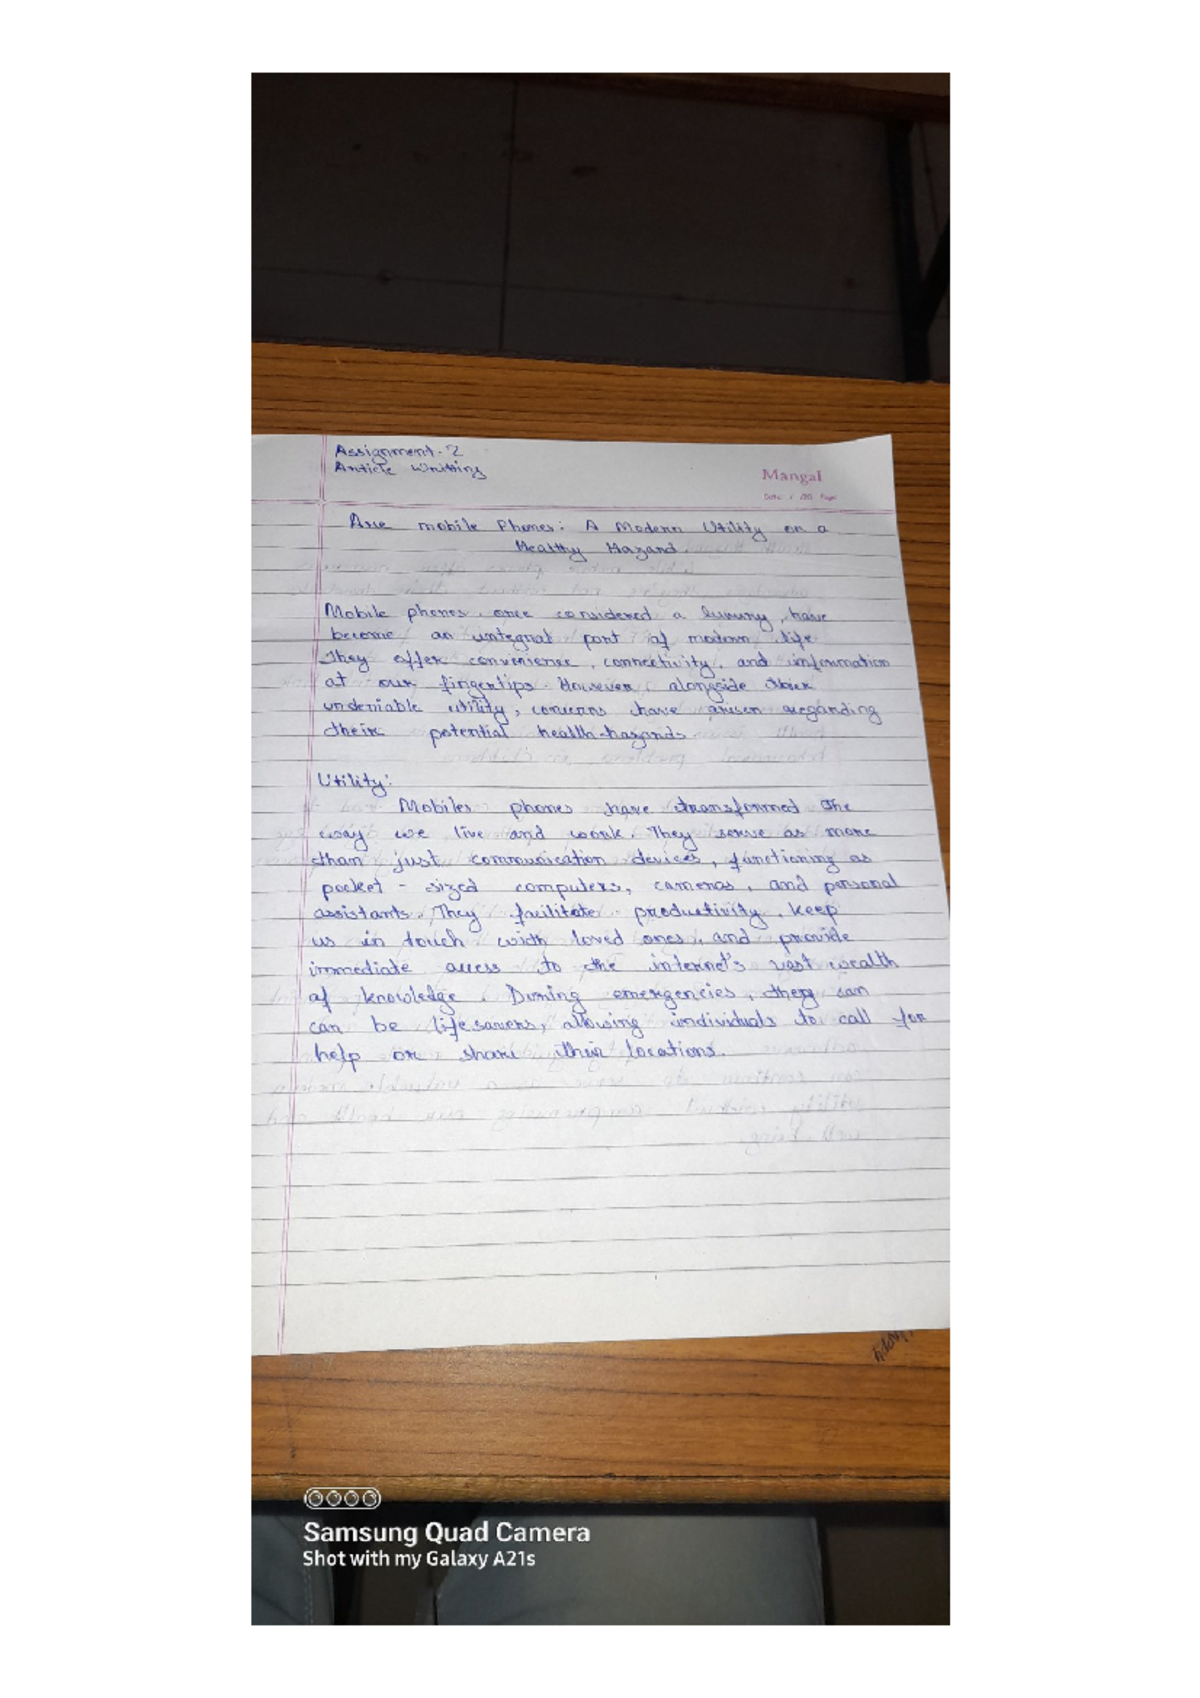 Assignment-2
Article Writting
Mangal
Are mobile Phones: A Modern Utility or a
Healthy Hazard
Mobile phones, once considered a luxury, have
become an integral part of modern life
They offer convenience, connectivity, and information
at our fingertips. However, alongside their
undeniable utility, concerns have arisen regarding
their potential health-hazards
Utility:
Mobiles phones have transformed the
way we live and work. They serve as more
than just communication devices, functioning as
pocket - sized computers, cameras, and personal
assistants. They facilitate productivity, keep
us in touch with loved ones, and provide
immediate access to the internet's vast wealth
of knowledge. During emergencies, they can
can be lifesavers, allowing individuals to call for
help or share their locations.
Samsung Quad Camera
Shot with my Galaxy A21s